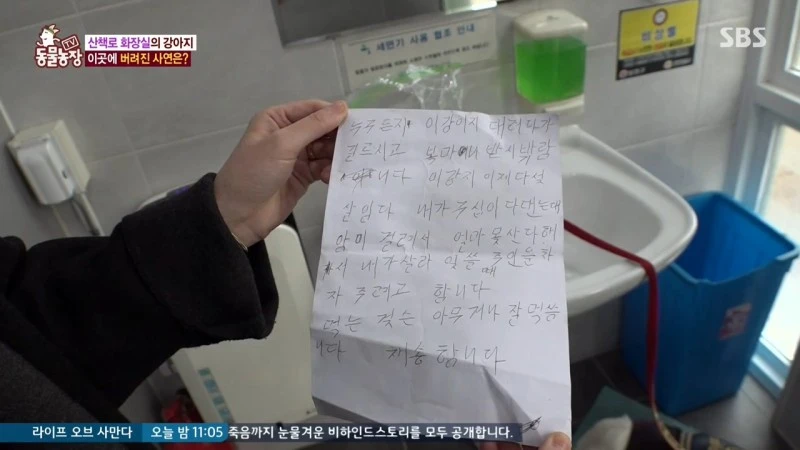 TV
동물농장
산책로 화장실의 강아지
이곳에 버려진 사연은?
SBS
세면기 사용 협조 안내
비상벨
누구든지 이강아지 대려다가
길르시고 복마니 받시박람
니다 이강지 이제다섯
살임다 내가주신이다댄는대
암미 걸려서 얼마 못산다해
서 내가살라 잊쓸때 주인을차
자 주려고 합니다
먹는 것는 아무거나 잘먹씀
니다 죄송합니다
라이프 오브 사만다 오늘 밤 11:05 죽음까지 눈물겨운 비하인드스토리를 모두 공개합니다.